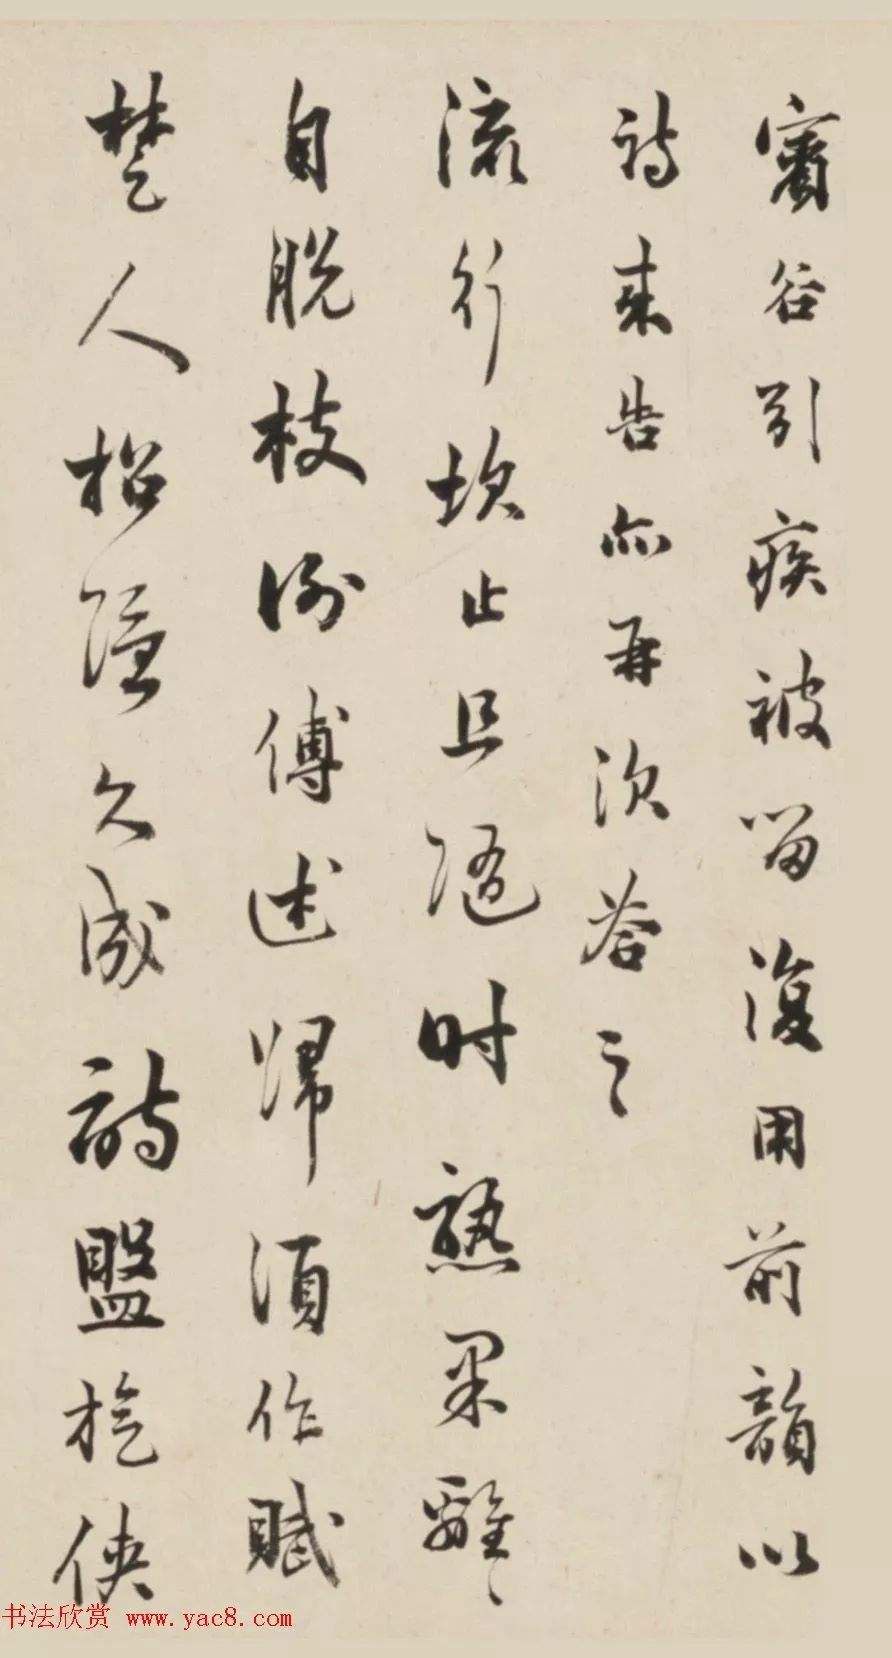 賓谷引疾被留復用前韻以
詩來告亦再次荅之
流行坎止且隨時熟果離〻
自脫枝例傅述歸須作賦
楚人招隱久成詩盟於俠
书法欣赏 www.yac8.com